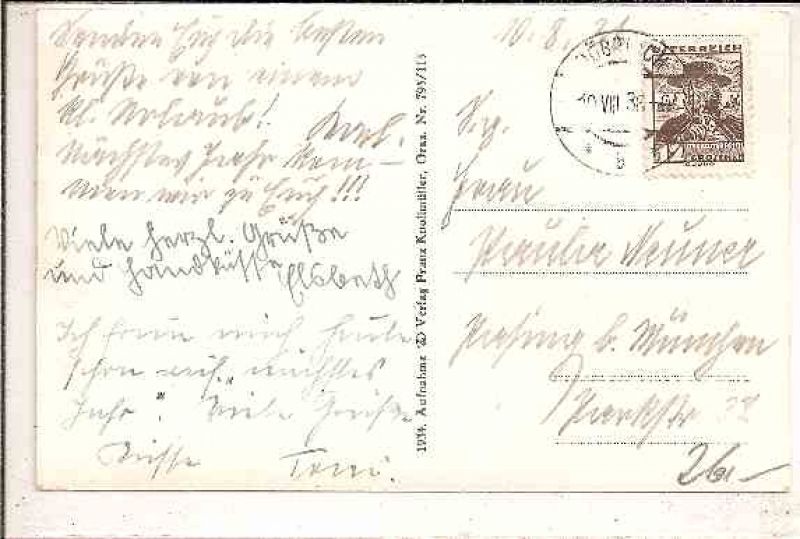 Senden Euch die besten
Grüße von einem
kl. Urlaub! Karl.
Nächstes Jahr kom-
men wir zu Euch!!!
Viele herzl. Grüße
und Handküsse Elsbeth
Ich freue mich heute
schon auf "nächstes
Jahr". Viele Grüße
Küsse Toni.
1934. Aufnahme u. Verlag Franz Knollmüller, Graz. Nr. 795/115
10. 8. 36
10 VIII 36
ÖSTERREICH
12
GROSCHEN
Frau
Paula Neuner
Pasing b. München
Parkstr 32